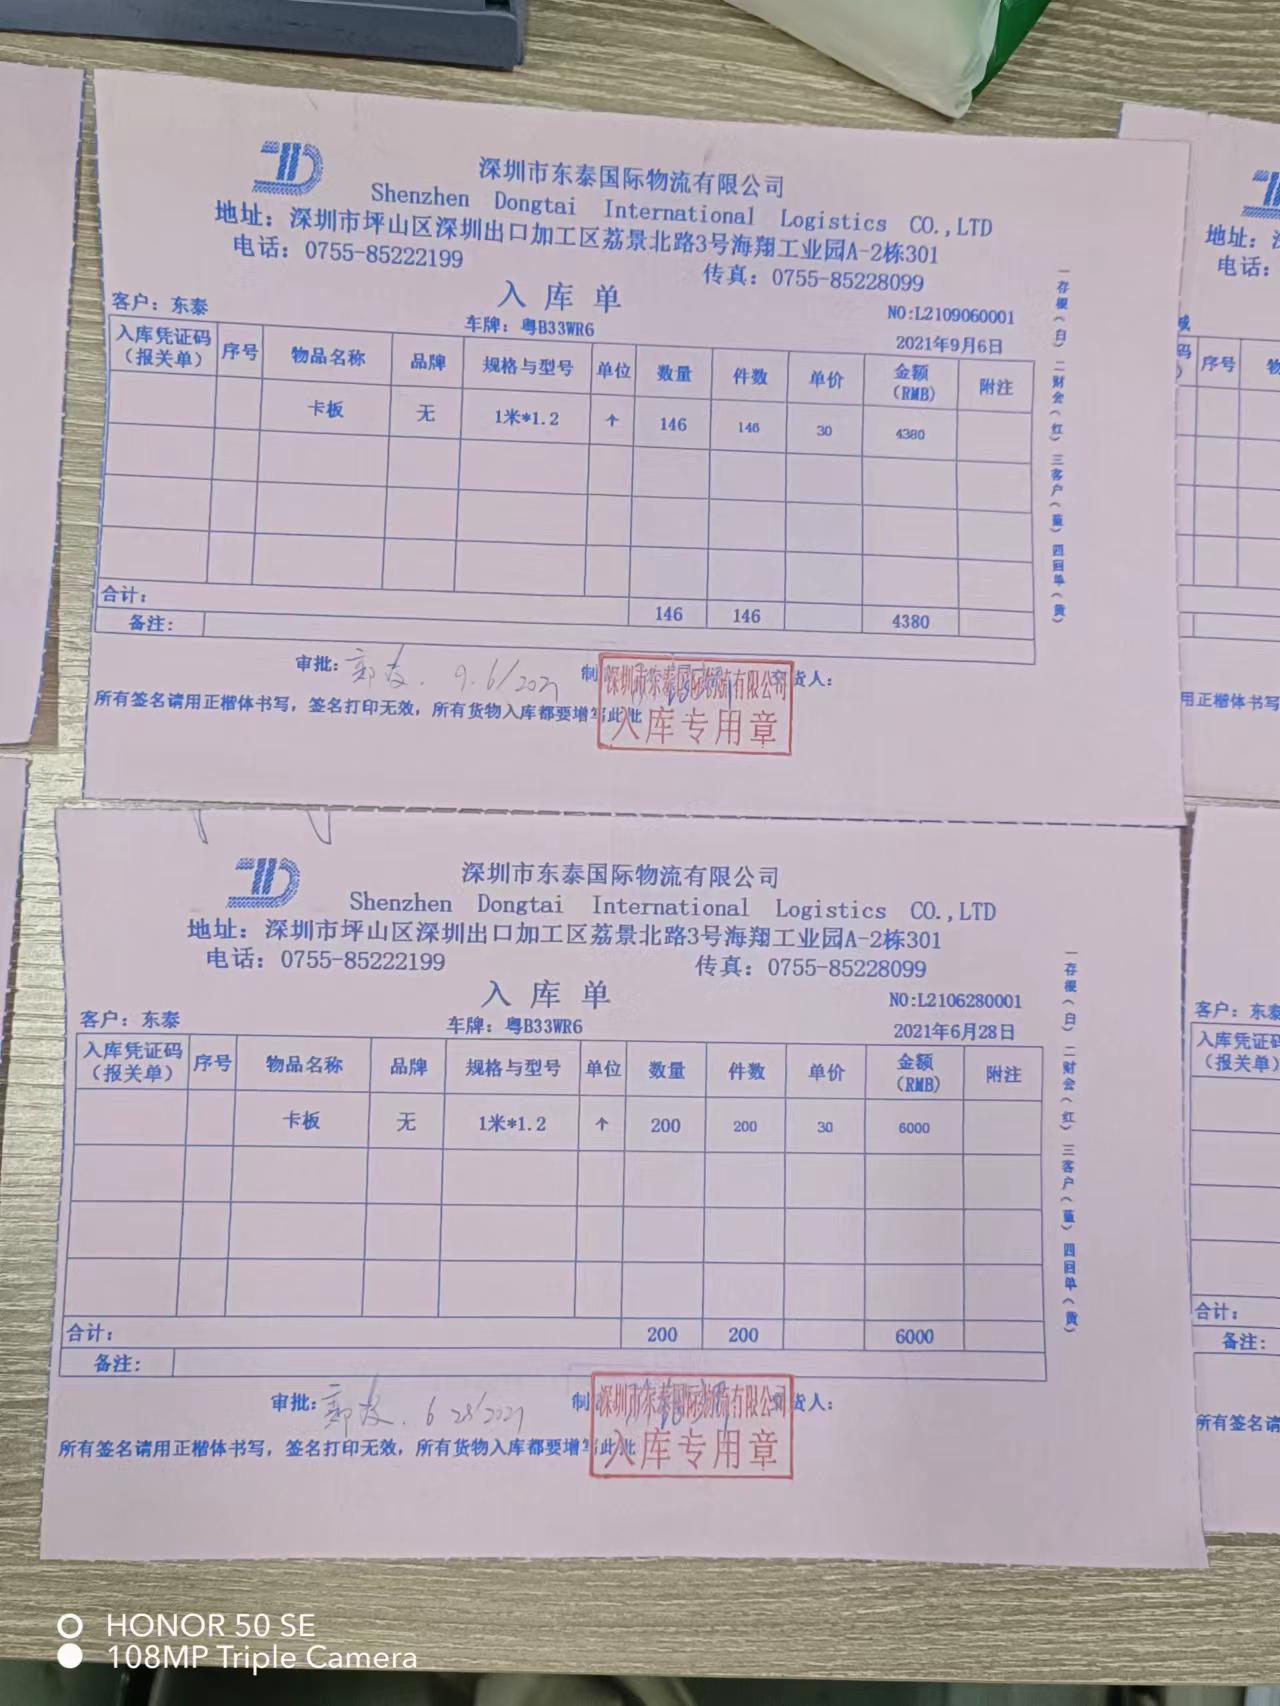 深圳市东泰国际物流有限公司
Shenzhen Dongtai International Logistics CO.,LTD
地址：深圳市坪山区深圳出口加工区荔景北路3号海翔工业园A-2栋301
电话：0755-85222199 传真：0755-85228099
入库单
NO:L2109060001
客户：东泰 车牌：粤B33WR6 2021年9月6日
入库凭证码（报关单） 序号 物品名称 品牌 规格与型号 单位 数量 件数 单价 金额（RMB） 附注
卡板 无 1米*1.2 个 146 146 30 4380
合计： 146 146 4380
备注：
审批： 9.6/2021 制 货人：
深圳市东泰国际物流有限公司
入库专用章
所有签名请用正楷体书写，签名打印无效，所有货物入库都要增写此
一存根（白）二财会（红）三客户（蓝）四回单（黄）
深圳市东泰国际物流有限公司
Shenzhen Dongtai International Logistics CO.,LTD
地址：深圳市坪山区深圳出口加工区荔景北路3号海翔工业园A-2栋301
电话：0755-85222199 传真：0755-85228099
入库单
NO:L2106280001
客户：东泰 车牌：粤B33WR6 2021年6月28日
入库凭证码（报关单） 序号 物品名称 品牌 规格与型号 单位 数量 件数 单价 金额（RMB） 附注
卡板 无 1米*1.2 个 200 200 30 6000
合计： 200 200 6000
备注：
审批： 6 28/2021 制 货人：
深圳市东泰国际物流有限公司
入库专用章
所有签名请用正楷体书写，签名打印无效，所有货物入库都要增写此
一存根（白）二财会（红）三客户（蓝）四回单（黄）
地址：
电话：
序号
用正楷体书写
客户：东泰
入库凭证码
（报关单）
合计：
备注：
所有签名请
HONOR 50 SE
108MP Triple Camera